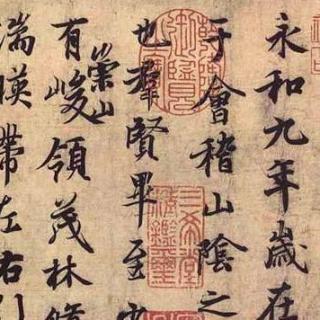 永和九年歲在
于會稽山陰之
也羣賢畢至
有崇山峻領茂林脩
湍暎帶左右引
三希堂
精鑑璽